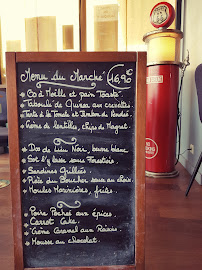 Menu du Marché 16,90€
Os à Moelle et pain Toasté.
Taboulé de Quinoa aux crevettes.
Tarte à la Tomate et Jambon de Vendée.
Crème de lentilles, chips de Magret.
Dos de Lieu Noir, beurre blanc.
sauce Forestière.
Sardines Grillées.
Pièce du Boucher sauce au choix.
Moules Marinières, frites.
Poire Pochée aux épices.
Carrot Cake.
Crème Caramel aux Raisins.
Mousse au chocolat.